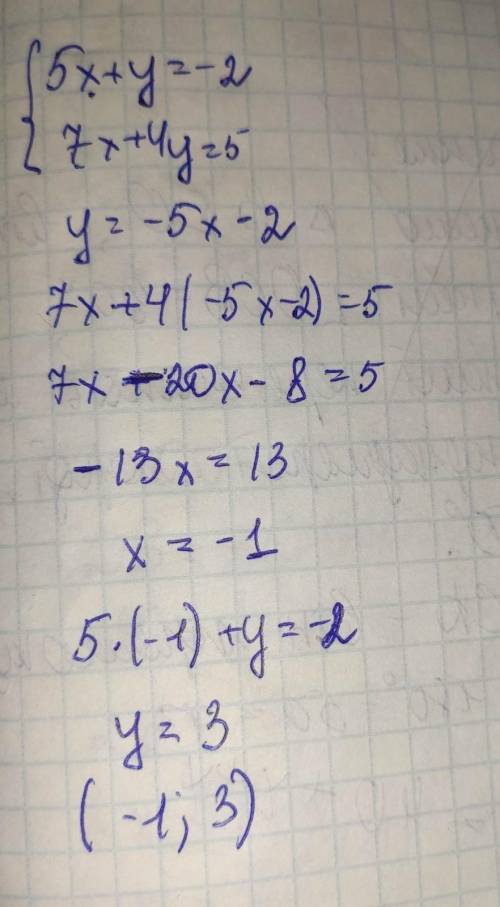 {5x+y=-2
7x+4y=5
y = -5x-2
7x+4(-5x-2)=5
7x-20x-8=5
-13x=13
x=-1
5·(-1)+y=-2
y=3
(-1; 3)